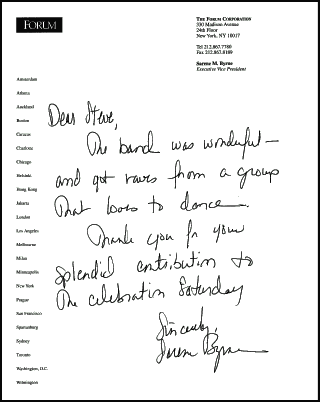 FORUM
THE FORUM CORPORATION
330 Madison Avenue
24th Floor
New York, NY 10017
Tel 212.867.7780
Fax 212.867.8169
Sarene M. Byrne
Executive Vice President
Amsterdam
Atlanta
Auckland
Boston
Caracas
Charlotte
Chicago
Helsinki
Hong Kong
Jakarta
London
Los Angeles
Melbourne
Milan
Minneapolis
New York
Prague
San Francisco
Spartanburg
Sydney
Toronto
Washington, D.C.
Wilmington
Dear Steve,
The band was wonderful –
and got raves from a group
that loves to dance.
Thank you for your
splendid contribution to
the celebration Saturday
Sincerely,
Sarene Byrne